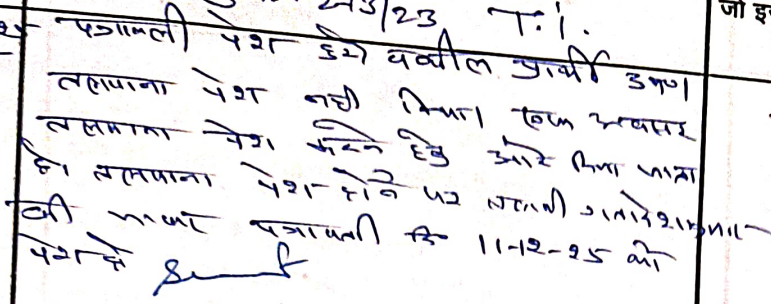 213/23 T.I.
जो इ
पत्रावली पेश हुयी वकील प्रार्थी उप०।
तलवाना पेश नही किया। एक अवसर
तलवाना पेश करने हेतु और दिया जाता
है। तलवाना पेश होने पर तलबी
की जावे पत्रावली दि 11-12-25 को
पेश हो